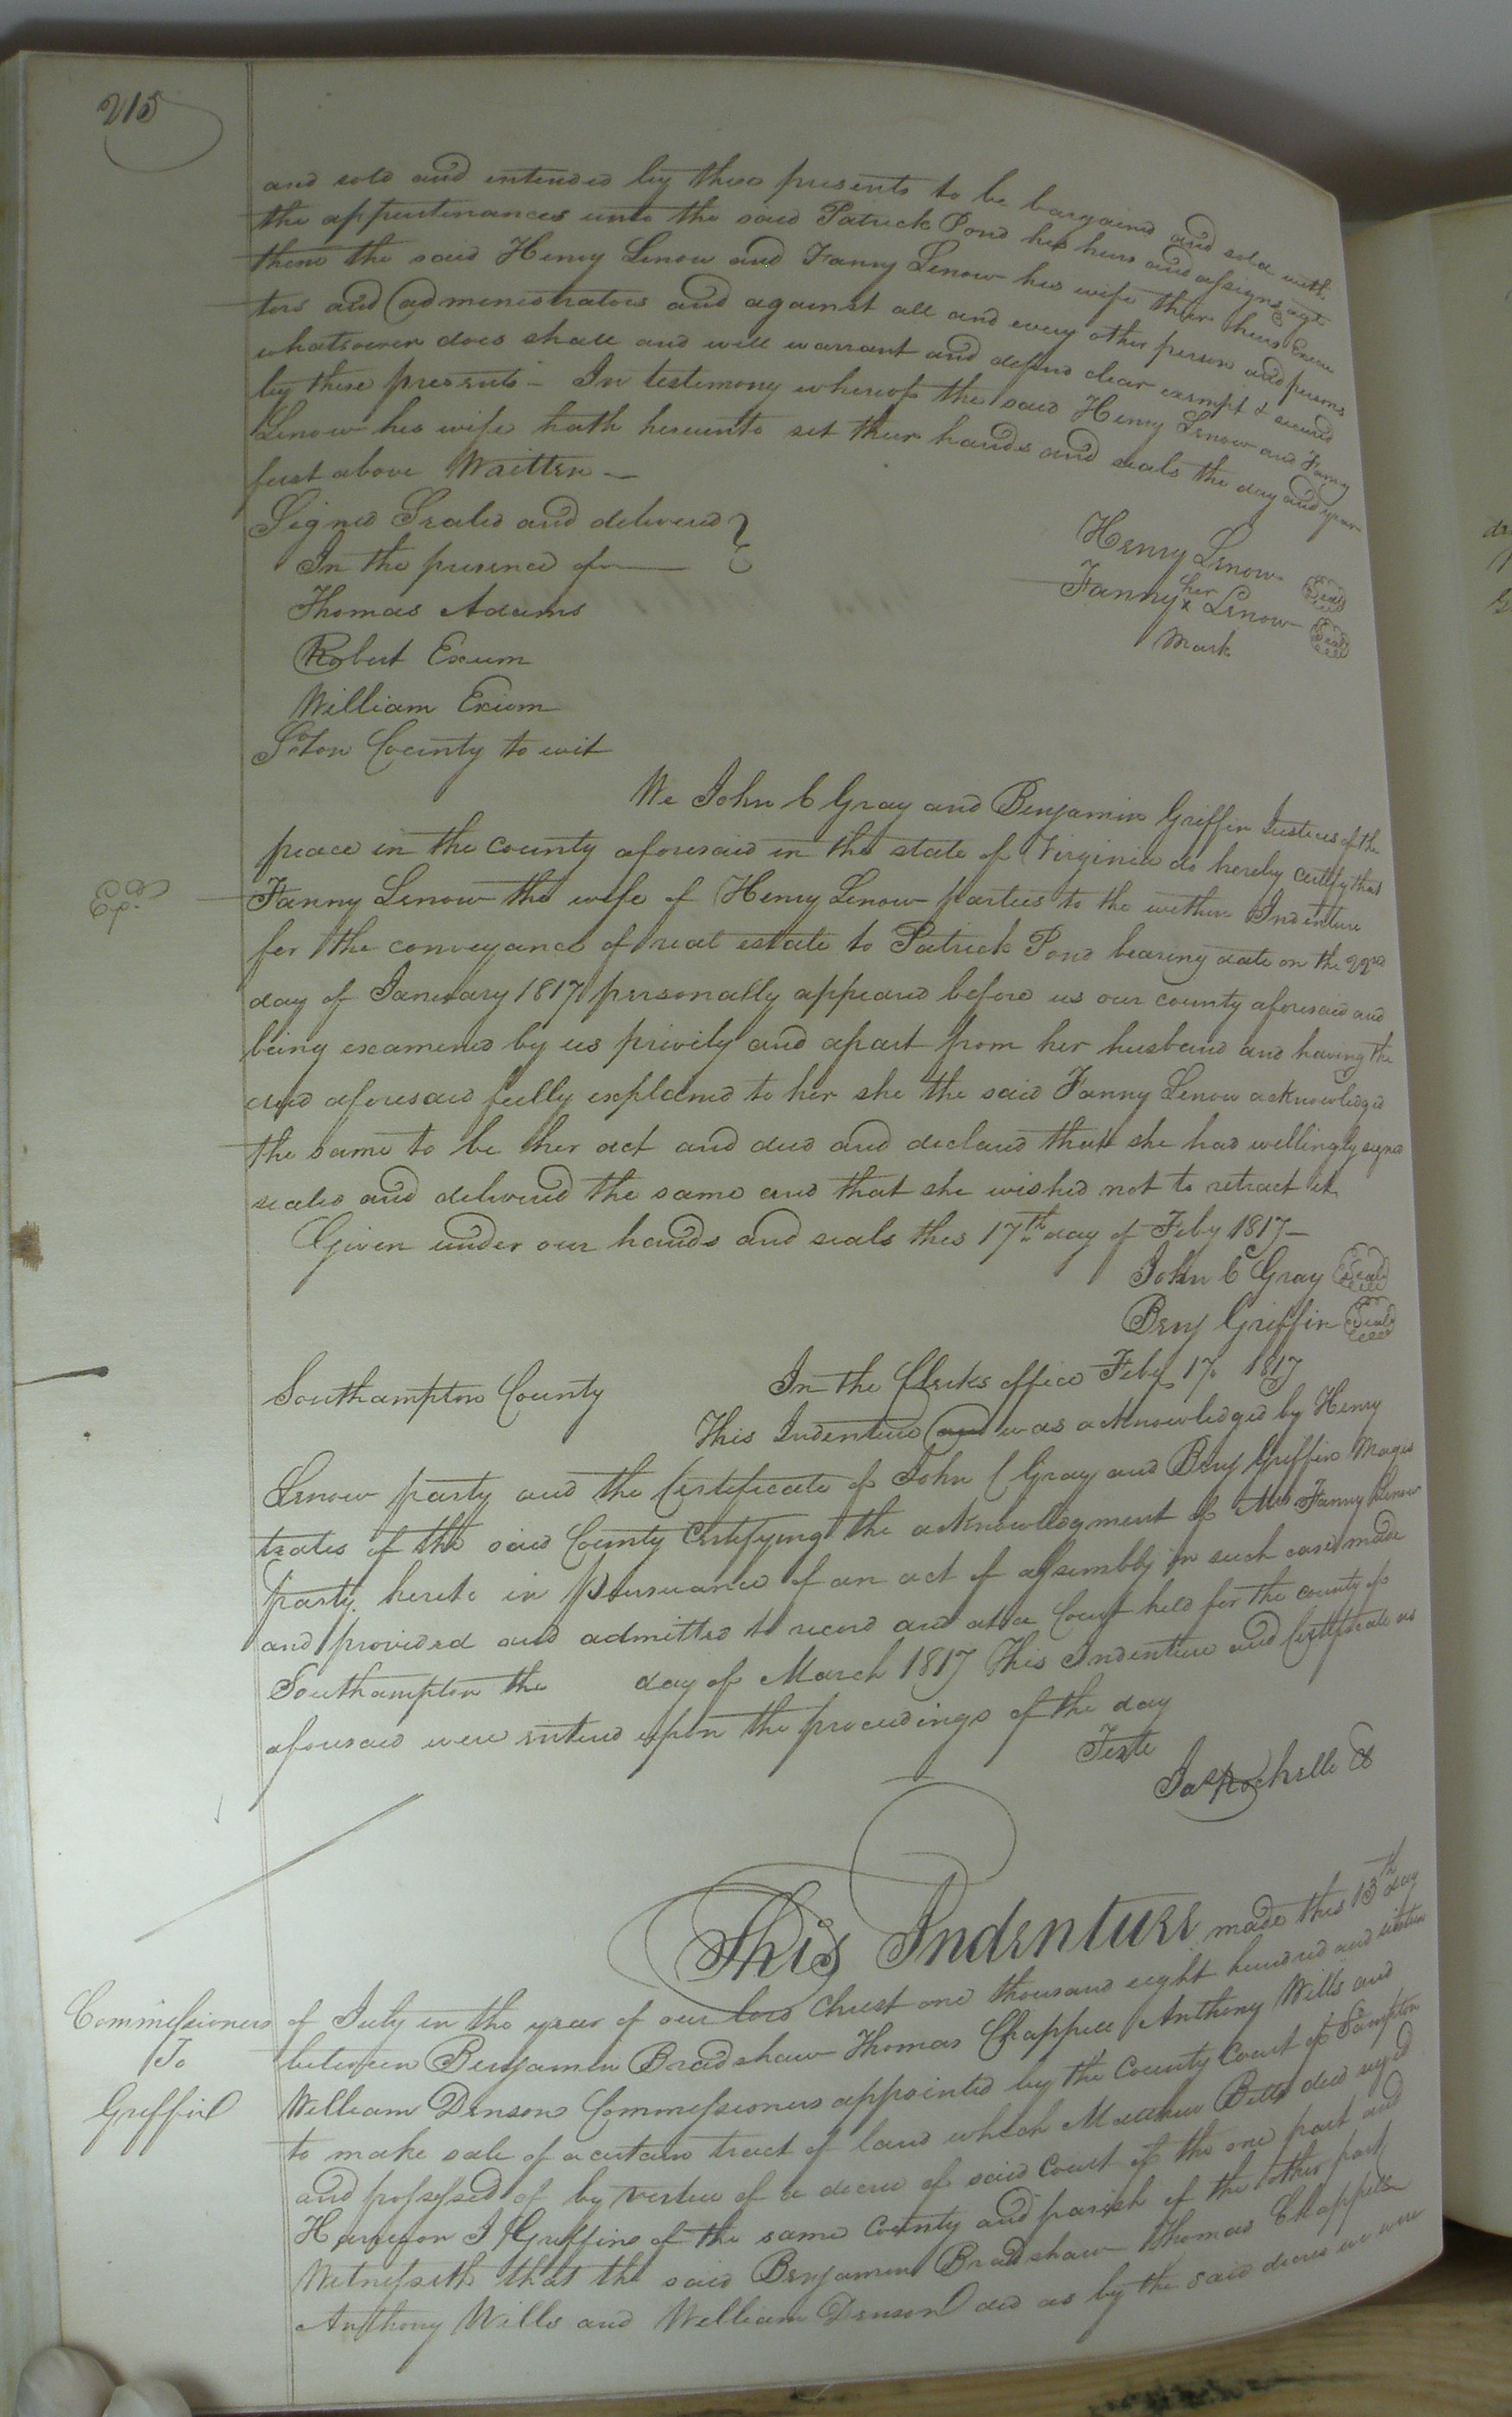 215
and sold and intended by these presents to be bargained and sold with
the appurtenances unto the said Patrick Pond his heirs and assigns agt
them the said Henry Lenow and Fanny Lenow his wife their heirs Execu
tors and administrators and against all and every other person and persons
whatsoever does shall and will warrant and defend clear exempt & secured
by these presents - In testimony whereof the said Henry Lenow and Fanny
Lenow his wife hath hereunto set their hands and seals the day and year
first above Written
Signed Sealed and delivered
In the presence of
Thomas Adams
Robert Exum
William Exum
Henry Lenow Seal
Fanny her x Lenow Seal
Mark
Soton County to wit
We John C Gray and Benjamin Griffin Justices of the
peace in the county aforesaid in the state of Virginia do hereby certify that
Exd
Fanny Lenow the wife of Henry Lenow parties to the within Indenture
for the conveyance of real estate to Patrick Pond bearing date on the 22nd
day of January 1817 personally appeared before us our county aforesaid and
being examened by us privily and apart from her husband and having the
deed aforesaid fully explaned to her she the said Fanny Lenow acknowledged
the same to be her act and deed and declared that she had willingly signed
sealed and delivered the same and that she wished not to retract it
Given under our hands and seals this 17th day of Feby 1817
John C Gray Seal
Benj Griffin Seal
Southampton County In the Clerks office Feby 17 1817
This Indenture and was acknowledged by Henry
Lenow party and the Certificate of John C Gray and Benj Griffin Magis
trates of the said County Certifying the acknowledgment of Mrs Fanny Lenow
party hereto in Pursuance of an act of assembly in such case made
and provided and admitted to record and at a Court held for the county of
Southampton the day of March 1817 This Indenture and Certificate as
aforesaid were entered upon the proceedings of the day
Teste
Jas Rochelle C
This Indenture made this 13th day
Commissioners
To
Griffin
of July in the year of our lord Christ one thousand eight hundred and sixteen
between Benjamin Bradshaw Thomas Chappell Anthony Wills and
William Denson Commissioners appointed by the County Court of Sampton
to make sale of a certain tract of land which Matthew Betts died seized
and possessed of by vertue of a decree of said Court of the one part and
J Griffin of the same County and parish of the other part
Witnesseth that the said Benjamin Bradshaw Thomas Chappell
Anthony Wills and William Denson did as by the said decree we were